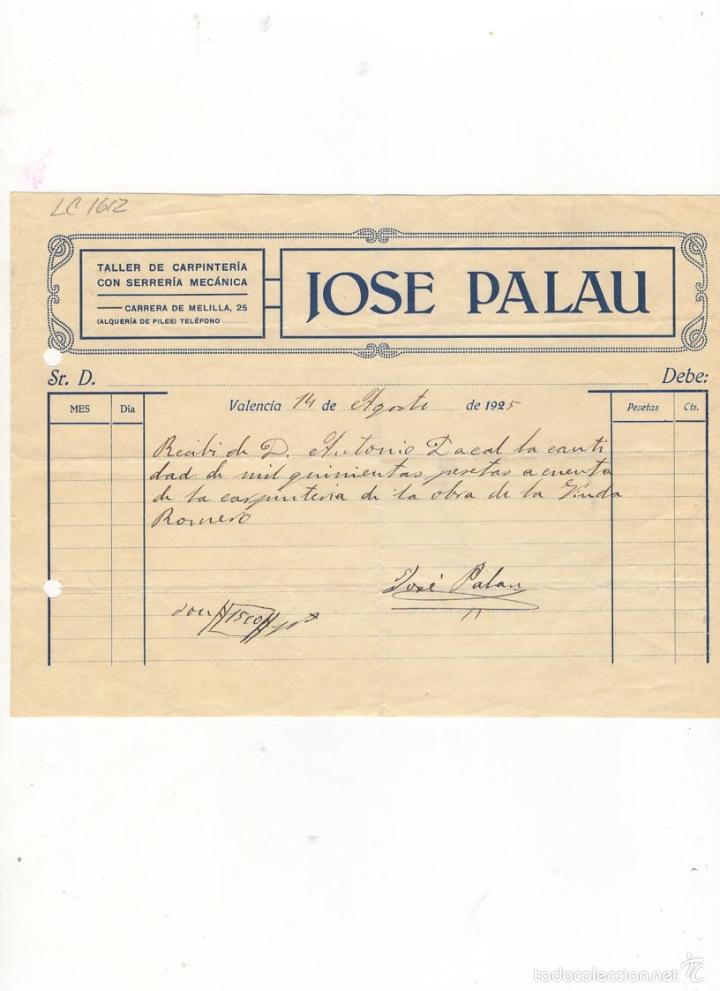 LC 1612
TALLER DE CARPINTERÍA
CON SERRERÍA MECÁNICA
CARRERA DE MELILLA, 25
(ALQUERÍA DE PILES) TELÉFONO
JOSE PALAU
Sr. D.
Debe:
MES Día Valencia 14 de Agosto de 1925 Pesetas Cts.
Recibi de D. Antonio Zacal la canti
dad de mil quinientas pesetas a cuenta
de la carpinteria de la obra de la Viuda
Romero
José Palau
Son #1500#
todocoleccion.net
TC